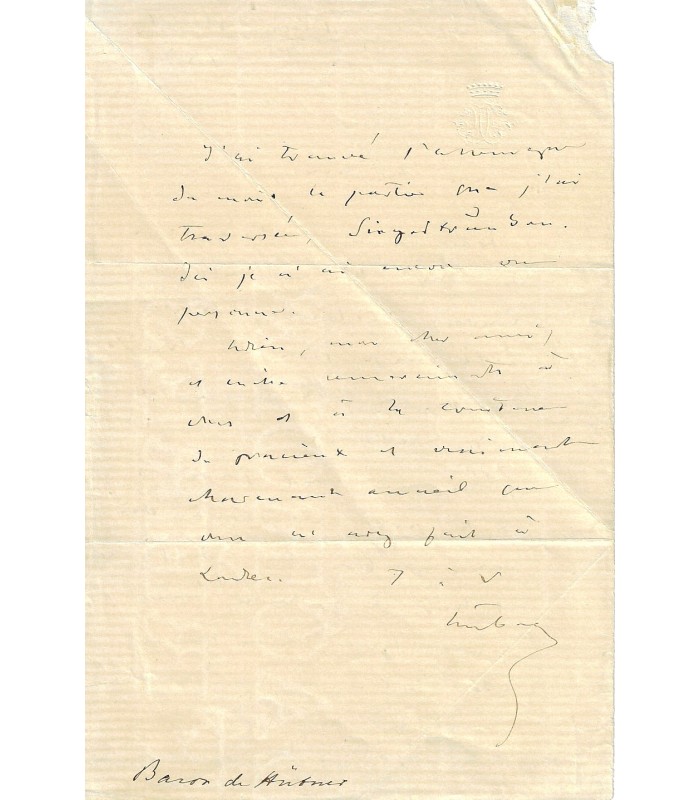 J'ai trouvé l'Allemagne
du moins la partie que j'ai
traversée,
Ici je n'ai encore vu
personne.
Adieu, mon cher ami,
et mille remerciments à
vous et à la comtesse
du gracieux et vraiment
charmant accueil que
vous m'avez fait à
Londres. T à V
Hübner
Baron de Hübner